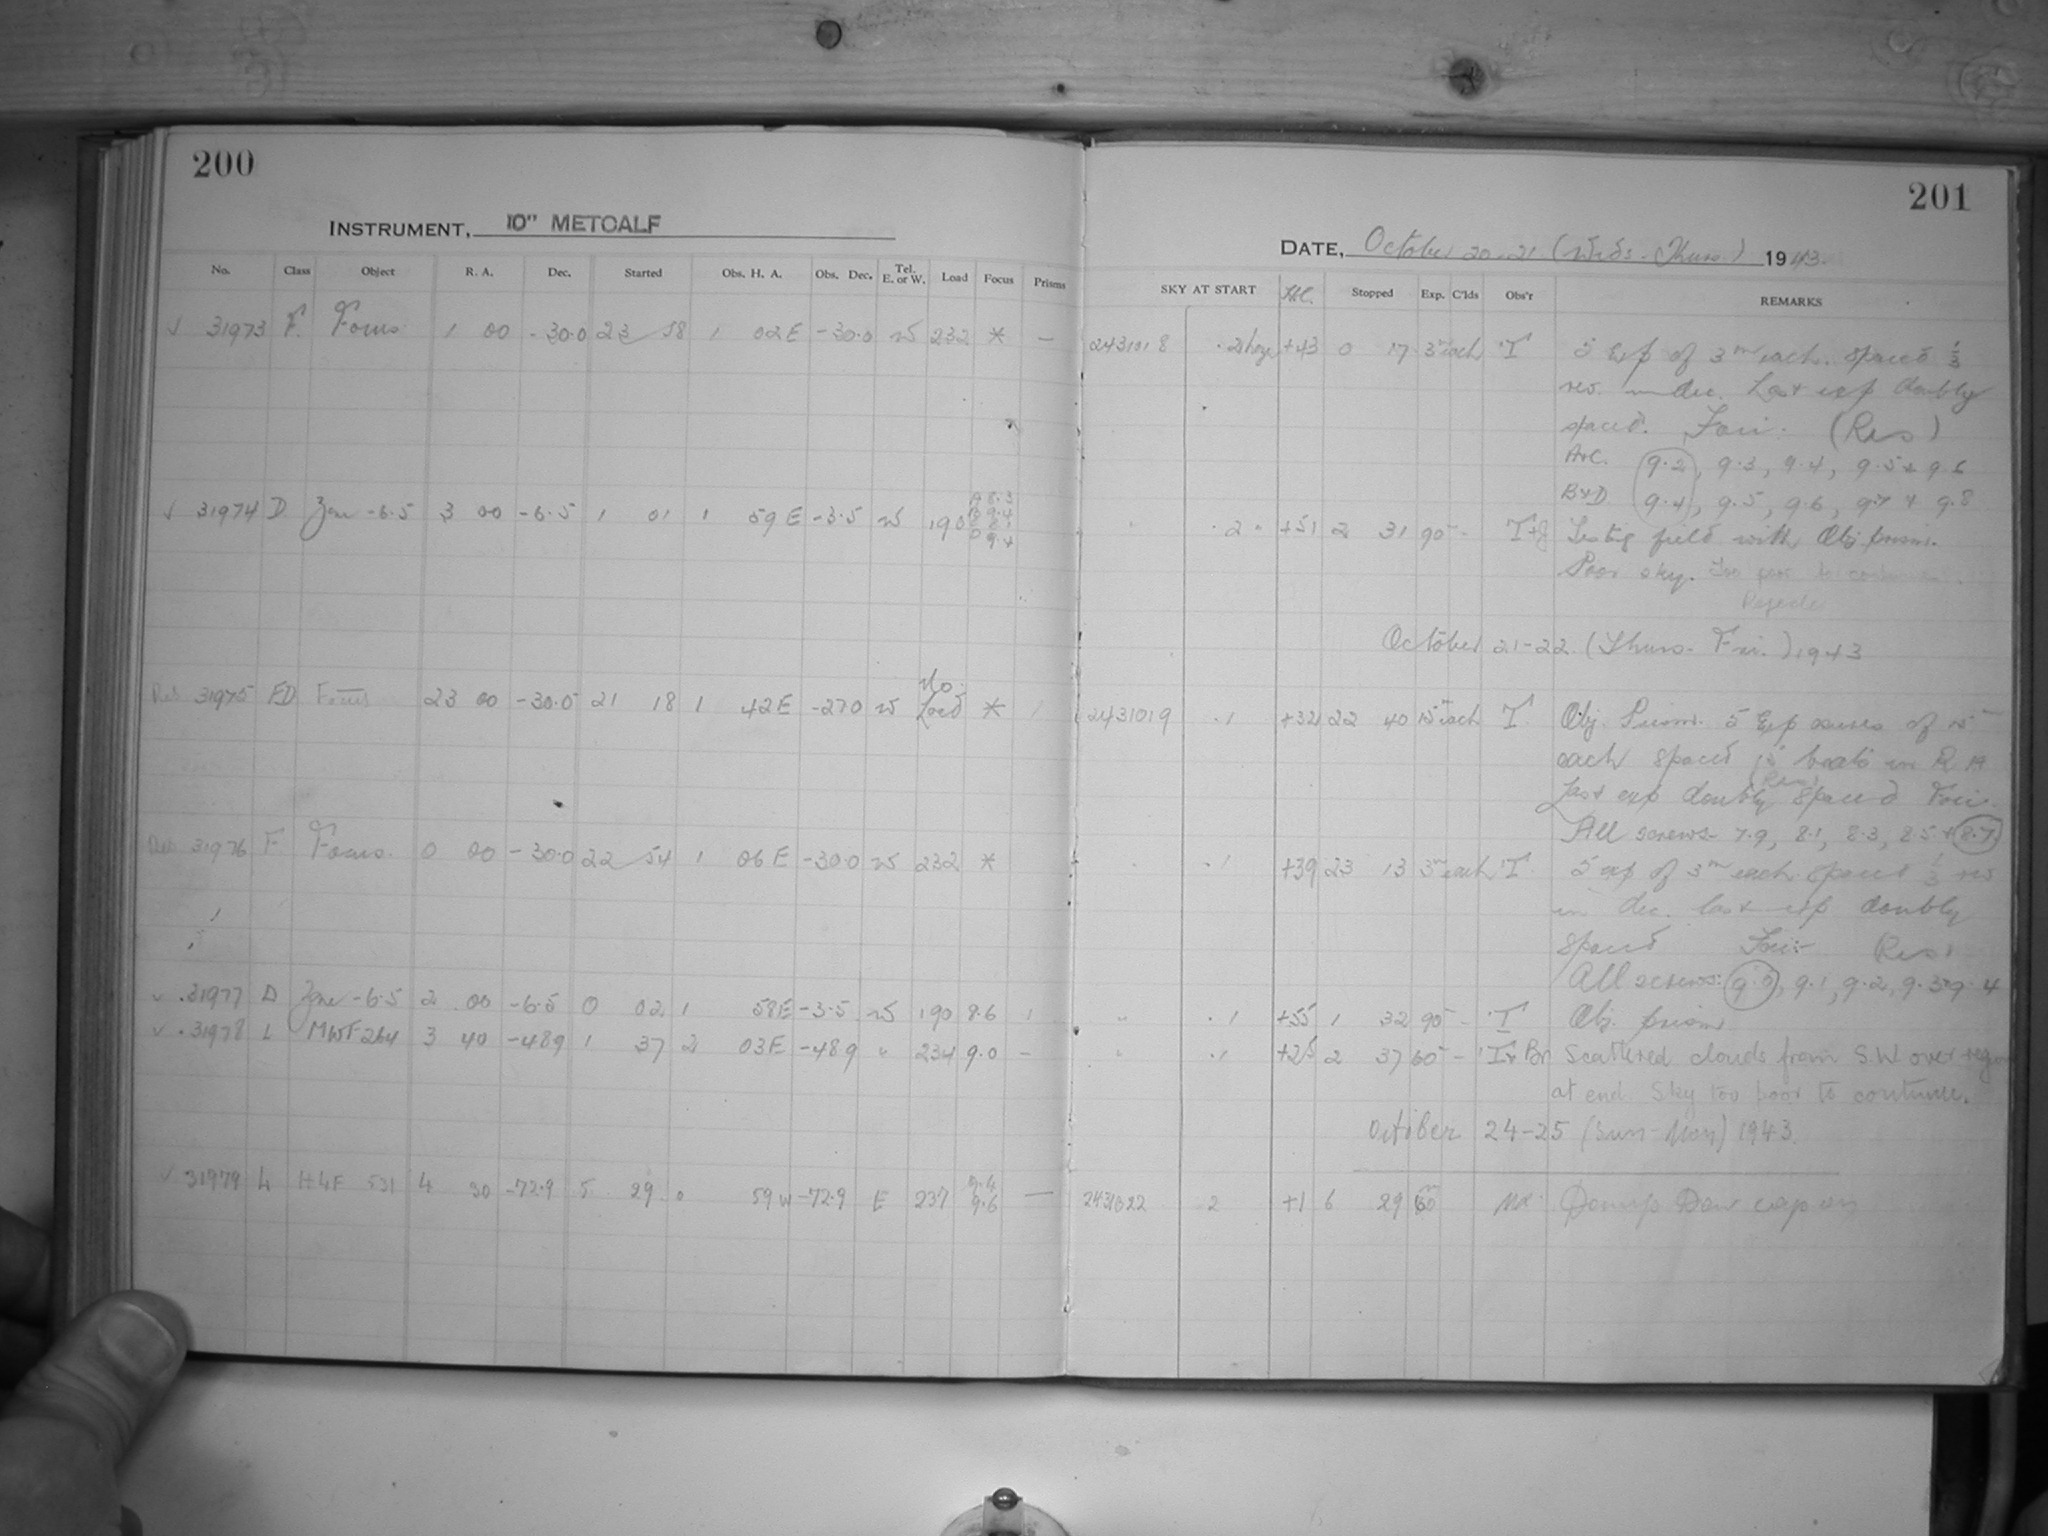 200
INSTRUMENT, 10" METCALF
No. Class Object R. A. Dec. Started Obs. H. A. Obs. Dec. Tel. E. or W. Load Focus Prisms
✓ 31973 F. Focus 1 00 -30.0 23 58 1 02 E -30.0 W 232 * —
✓ 31974 D Zone -6.5 3 00 -6.5 1 01 1 59 E -3.5 W 190
31975 FD Focus 23 00 -30.0 21 18 1 42 E -27.0 W No Load * 1
31976 F Focus 0 00 -30.0 22 54 1 06 E -30.0 W 232 *
31977 D Zone -6.5 2 00 -6.5 0 02 1 58 E -3.5 W 190 8.6 1
31978 L MWF 264 3 40 -48.9 1 37 2 03 E -48.9 " 234 9.0 —
✓ 31979 L HLF 531 4 30 -72.9 5 29 0 59 W -72.9 E 237 9.6 —
201
DATE, October 20-21 (Weds-Thurs.) 1943
SKY AT START Stopped Exp. C'lds Obs'r REMARKS
2431018 +43 0 17 3m each T 5 Exp of 3m each. spaced 1/3
rev. in dec. Last exp doubly
spaced. Foci. (Res)
A+C. 9.2, 9.3, 9.4, 9.5 + 9.6
B+D 9.4, 9.5, 9.6, 9.7 + 9.8
" .2 " +51 2 31 90 - Testing field with Obj prism.
Poor sky. Too poor to continue.
October 21-22 (Thurs-Fri.) 1943
2431019 .1 +32 22 40 15m each T Obj. Prism. 5 Exposures of 15m
each spaced 15 beats in R A
Last exp doubly spaced Foci
(Res)
All screws 7.9, 8.1, 8.3, 8.5 + 8.7
" .1 +39 23 13 3m each T 5 exp of 3m each spaced 1/3 rev
in dec. last exp doubly
spaced Foci (Res)
All screws: 9.0, 9.1, 9.2, 9.3 + 9.4
" .1 +55 1 32 90 - T Obj. prism
" .1 +25 2 37 60 - T + Br Scattered clouds from S.W. over region
at end. Sky too poor to continue.
October 24-25 (Sun-Mon) 1943.
2431022 2 +1 6 29 60m Damp Dew cap on